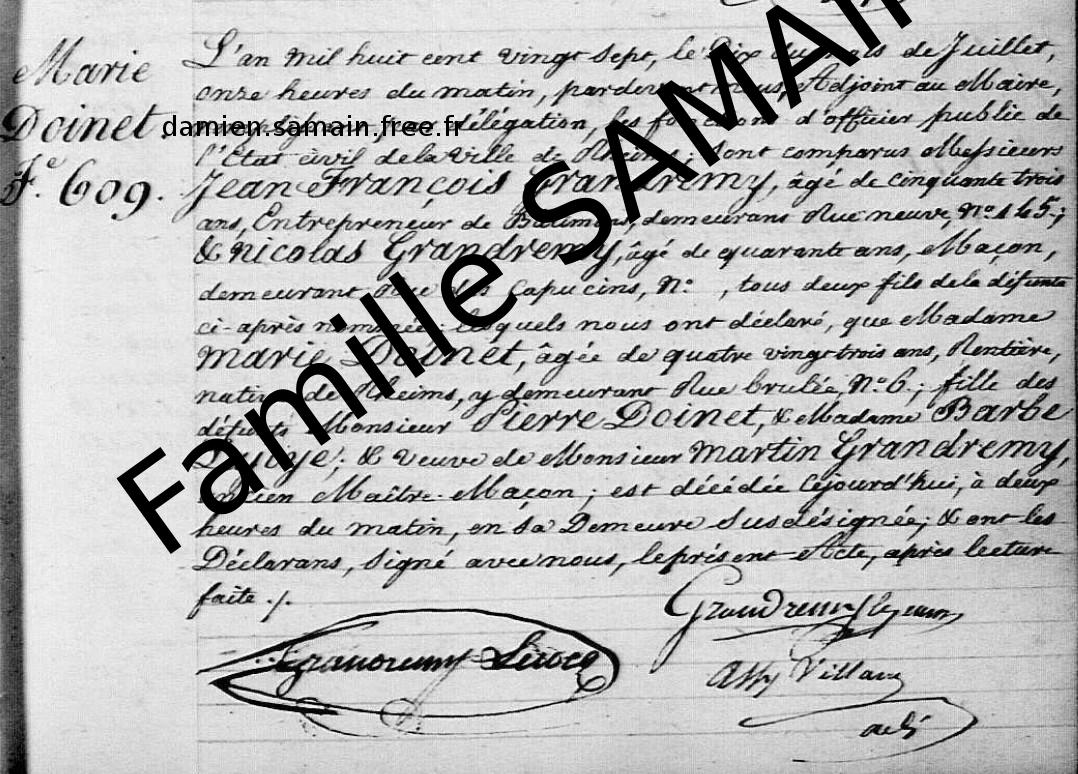 Marie
Doinet
F.e 609.
L'an mil huit cent vingt sept, le Dix du mois de Juillet,
onze heures du matin, pardevant nous, Adjoint au Maire,
délégation, les fonctions d'officier public de
l'Etat civil de la Ville de Rheims; sont comparus Messieurs
Jean François Grandremy, âgé de cinquante trois
ans, Entrepreneur de Batimens, demeurans Rue neuve, N.o 145;
& Nicolas Grandremy, âgé de quarante ans, Maçon,
demeurant Rue des Capucins, N.o , tous deux fils de la défunte
ci-après nommée; lesquels nous ont déclaré, que Madame
Marie Doinet, âgée de quatre vingt trois ans, Rentière,
native de Rheims, y demeurant Rue brulée, N.o 6; fille des
défunts Monsieur Pierre Doinet, & Madame Barbe
; & veuve de Monsieur Martin Grandremy,
ancien Maître Maçon; est décédée cejourd'hui, à deux
heures du matin, en sa Demeure susdésignée; & ont les
Déclarans, signé avec nous, le présent Acte, après lecture
faite ./.
Grandremy le jeune
Grandremy
damien.samain.free.fr
Famille SAMAIN